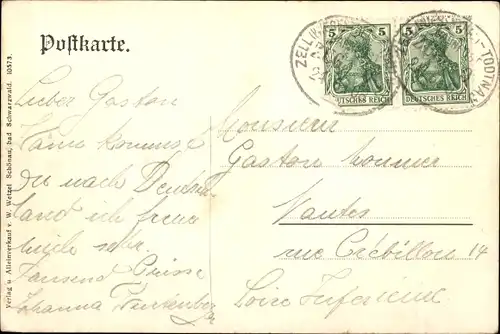 Postkarte.
ZELL (WIESENTHAL)-TODTNAU
5 5
DEUTSCHES REICH DEUTSCHES REICH
Verlag u. Alleinverkauf v. W. Wetzel Schönau, bad Schwarzwald. 10573.
Lieber Gaston
Wann kommst
Du nach Deutsch-
land ich freue
mich sehr.
Tausend Grüsse
Johanna
Monsieur
Gaston Monnier
Nantes
rue Crébillon 14
Loire Inférieure